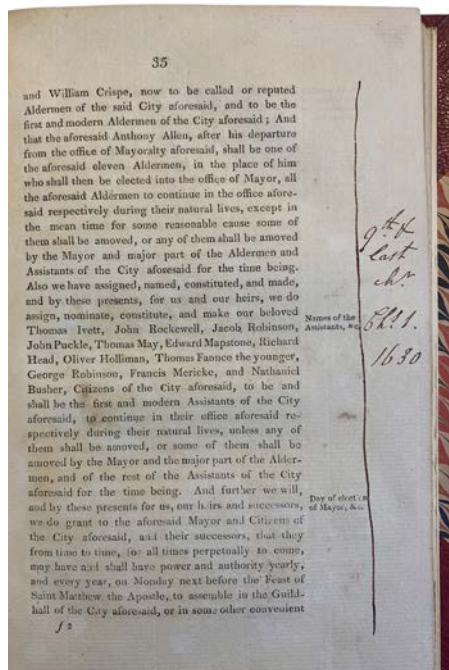 35
and William Crispe, now to be called or reputed
Aldermen of the said City aforesaid, and to be the
first and modern Aldermen of the City aforesaid; And
that the aforesaid Anthony Allen, after his departure
from the office of Mayoralty aforesaid, shall be one of
the aforesaid eleven Aldermen, in the place of him
who shall then be elected into the office of Mayor, all
the aforesaid Aldermen to continue in the office afore-
said respectively during their natural lives, except in
the mean time for some reasonable cause some of
them shall be amoved, or any of them shall be amoved
by the Mayor and major part of the Aldermen and
Assistants of the City aforesaid for the time being.
Also we have assigned, named, constituted, and made,
and by these presents, for us and our heirs, we do
assign, nominate, constitute, and make our beloved
Thomas Ivett, John Rockewell, Jacob Robinson,
John Puckle, Thomas May, Edward Mapstone, Richard
Head, Oliver Holliman, Thomas Faunce the younger,
George Robinson, Francis Mericke, and Nathaniel
Busher, Citizens of the City aforesaid, to be and
shall be the first and modern Assistants of the City
aforesaid, to continue in their office aforesaid re-
spectively during their natural lives, unless any of
them shall be amoved, or some of them shall be
amoved by the Mayor and the major part of the Alder-
men, and of the rest of the Assistants of the City
aforesaid for the time being. And further we will,
and by these presents for us, our heirs and successors,
we do grant to the aforesaid Mayor and Citizens of
the City aforesaid, and their successors, that they
from time to time, for all times perpetually to come,
may have and shall have power and authority yearly,
and every year, on Monday next before the Feast of
Saint Matthew the Apostle, to assemble in the Guild-
hall of the City aforesaid, or in some other convenient
f 2
Names of the
Assistants, &c.
Day of election
of Mayor, &c.
9th &
last
chr
Chs 1.
1630